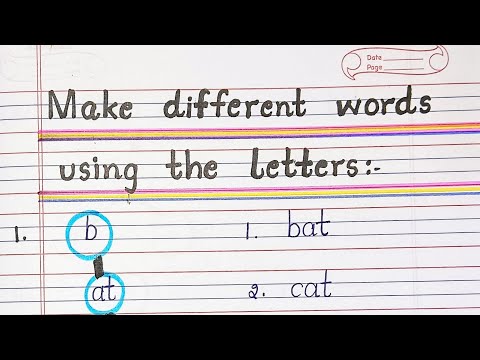 Date
Page
Make different words
using the letters:-
1. b 1. bat
at 2. cat